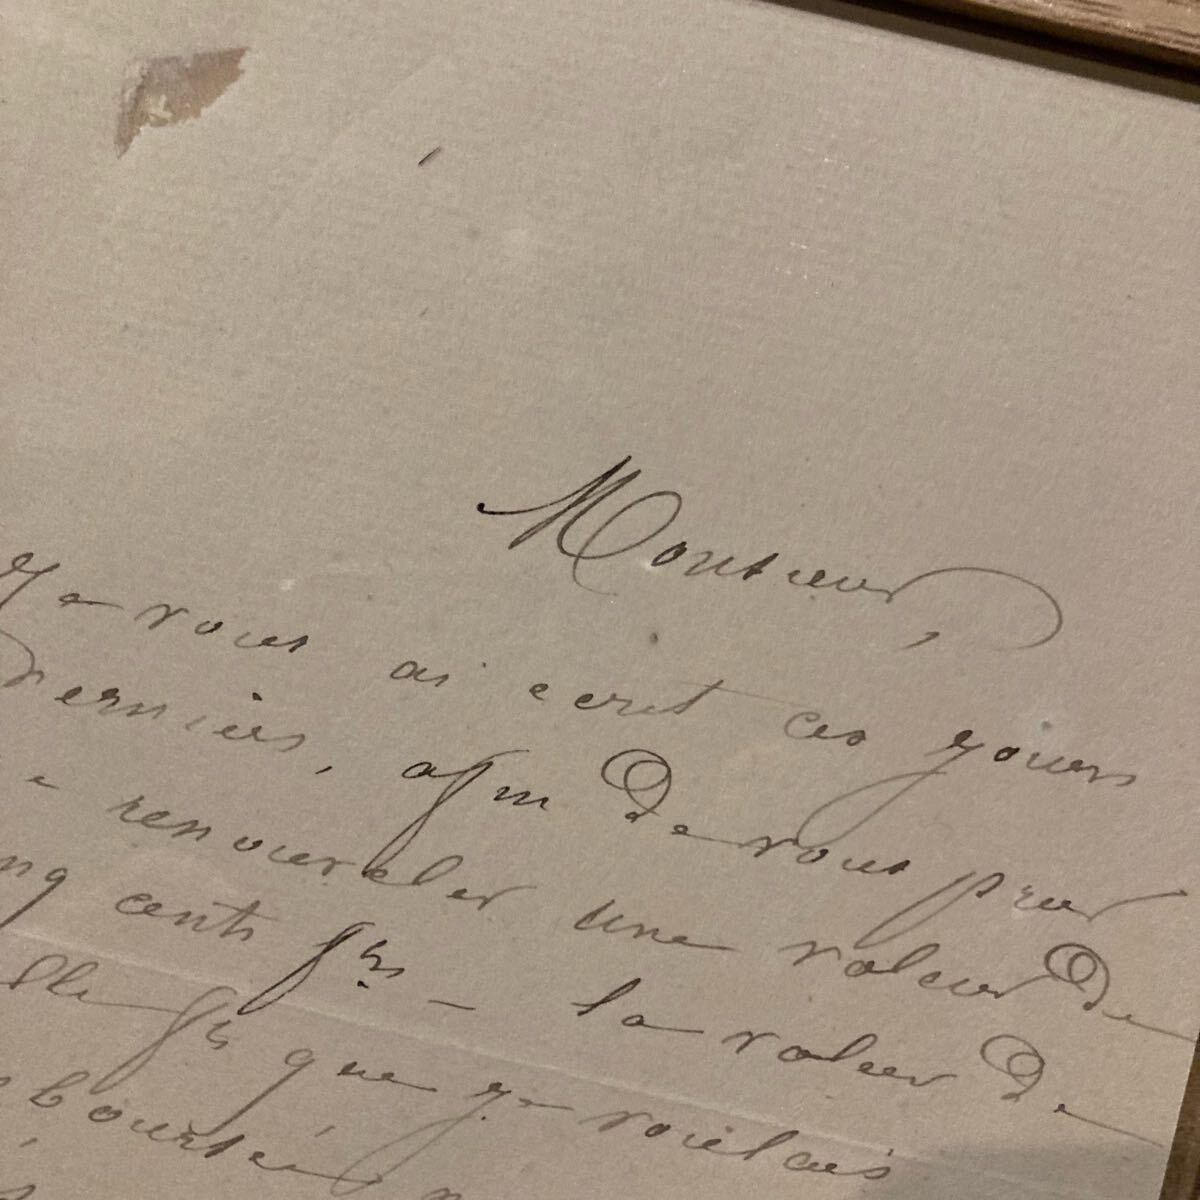 Monsieur,
Je vous ai ecrit ces jours
derniers, afin de vous prier
renouveler une valeur de
cents frs - la valeur de
frs que je voulais